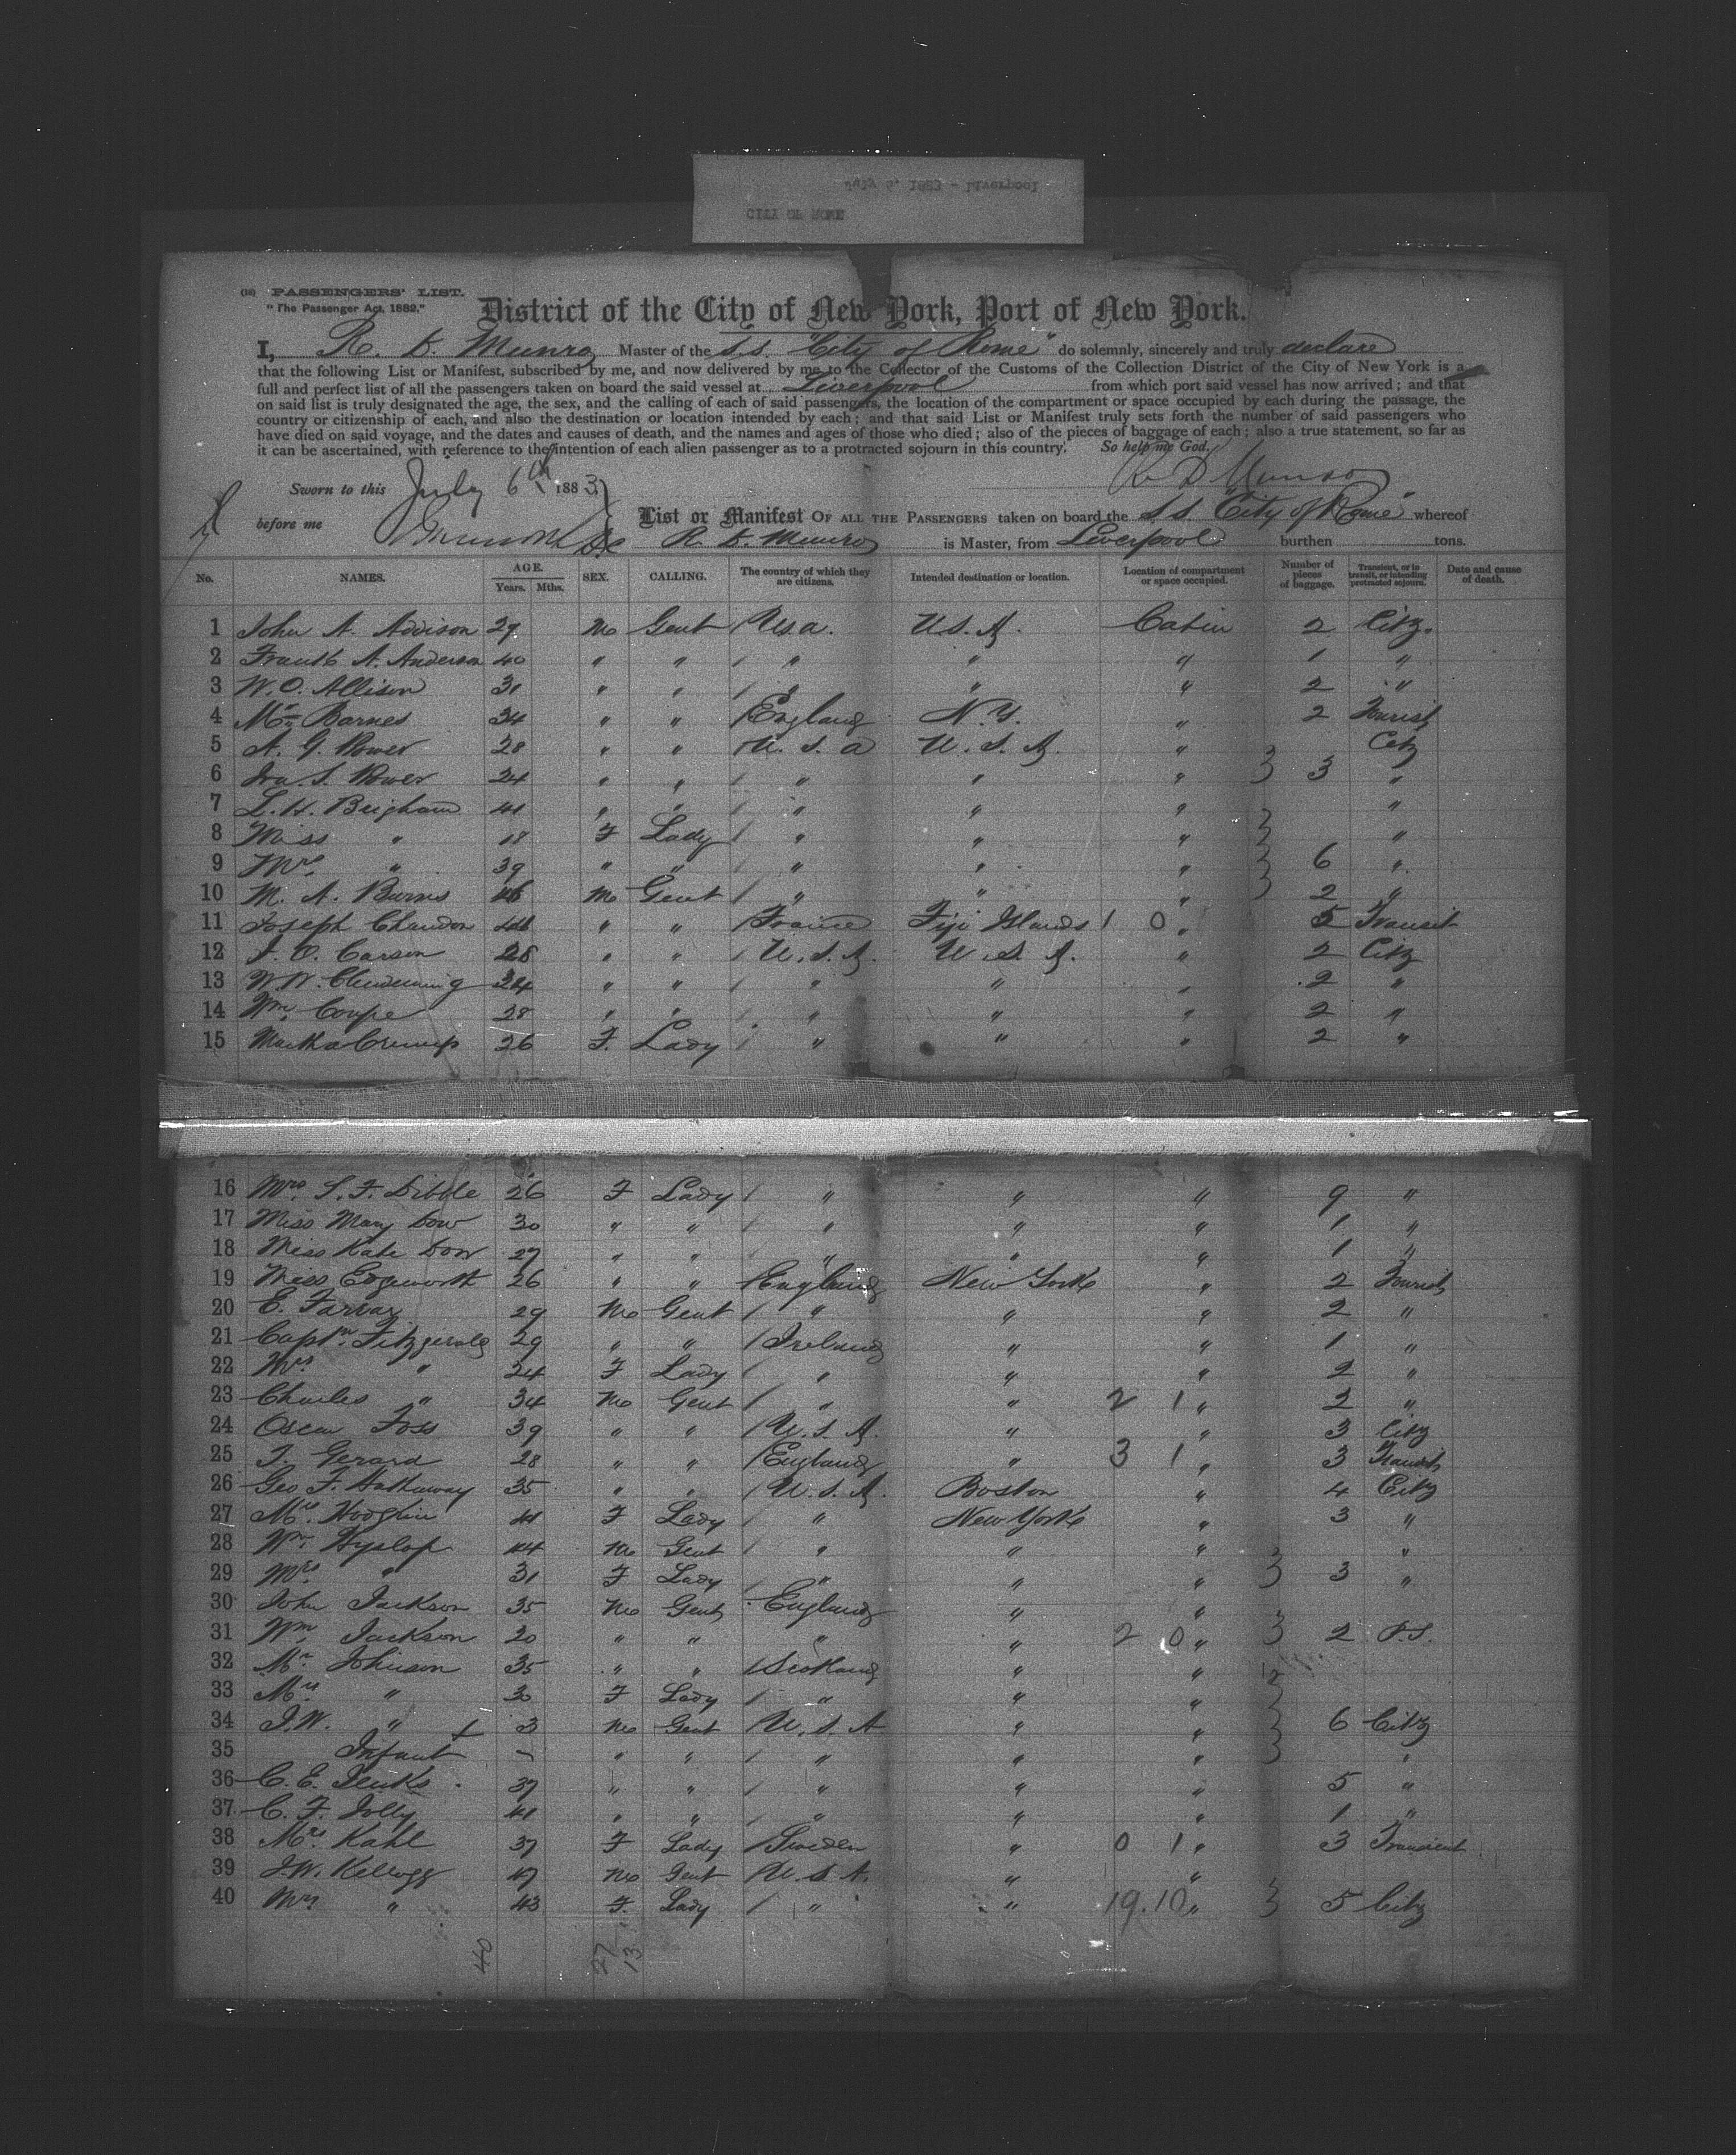 July 6, 1883 - Liverpool
CITY OF ROME
(10) PASSENGERS' LIST.
"The Passenger Act, 1882,"
District of the City of New York, Port of New York.
I, R. D. Munro Master of the S.S. "City of Rome" do solemnly, sincerely and truly declare
that the following List or Manifest, subscribed by me, and now delivered by me to the Collector of the Customs of the Collection District of the City of New York is a
full and perfect list of all the passengers taken on board the said vessel at Liverpool from which port said vessel has now arrived; and that
on said list is truly designated the age, the sex, and the calling of each of said passengers, the location of the compartment or space occupied by each during the passage, the
country or citizenship of each, and also the destination or location intended by each; and that said List or Manifest truly sets forth the number of said passengers who
have died on said voyage, and the dates and causes of death, and the names and ages of those who died; also of the pieces of baggage of each; also a true statement, so far as
it can be ascertained, with reference to the intention of each alien passenger as to a protracted sojourn in this country. So help me God.
R D Munro
Sworn to this July 6th 1883
before me
List or Manifest OF ALL THE PASSENGERS taken on board the S.S. "City of Rome" whereof
R. D. Munro is Master, from Liverpool burthen tons.
No. NAMES. AGE. Years. Mths. SEX. CALLING. The country of which they are citizens. Intended destination or location. Location of compartment or space occupied. Number of pieces of baggage. Transient, or in transit, or intending protracted sojourn. Date and cause of death.
1 John A. Addison 29 M Gent / U.S.a. U.S.A. Cabin 2 Citz.
2 Frank A. Anderson 40 " " / " " " 1 "
3 W. O. Allison 31 " " / " " " 2 "
4 Mr Barnes 34 " " / England N.Y. " 2 Tourist
5 A. G. Bower 28 " " / U.S.a U.S.A. " Citz
6 Ira S. Bower 24 " " / " " " 3 "
7 L. H. Brigham 41 " " / " " " "
8 Miss " 18 F Lady / " " " "
9 Mrs " 39 " " / " " " 6 "
10 M. A. Burns 46 M Gent / " " " 2 "
11 Joseph Chandon 44 " " / France Fiji Islands 1 0 " 5 Transit
12 J. O. Carson 28 " " / U.S.A. U.S.A. " 2 Citz
13 W. W. Clendening 24 " " / " " " 2 "
14 Wm. Coupe 28 " " / " " " 2 "
15 Martha Crump 26 F. Lady / " " " 2 "
16 Mrs. S. F. Dibble 26 F Lady / " " " 9 "
17 Miss Mary Dow 30 " " / " " " 1 "
18 Miss Kate Dow 27 " " / " " " 1 "
19 Miss Edgeworth 26 " " / England New York " 2 Tourist
20 E. Farrar 29 M Gent / " " " 2 "
21 Captn. Fitzgerald 29 " " / Ireland " " 1 "
22 Mrs " 24 F Lady / " " " 2 "
23 Charles " 34 M Gent / " " 2 1 " 2 "
24 Oscar Foss 39 " " / U.S.A. " " 3 Citz
25 T. Gerard 28 " " / England " 3 1 " 3
26 Geo F. Hathaway 35 " " / U.S.A. Boston " 4 Citz
27 Mrs. Hodgkin 41 F Lady / " New York " 3 "
28 Wm. Hyslop 44 M Gent / " " " "
29 Mrs " 31 F Lady / " " " 3 "
30 John Jackson 35 M Gent England " "
31 Wm. Jackson 20 " " " " 2 0 " 2 P.S.
32 Mr. Johnson 35 " " / Scotland " "
33 Mrs. " 30 F Lady / " " "
34 J. W. " 3 M Gent / U.S.A " " 6 Citz
35 Infant - " " / " " " "
36 C. E. Jenks 37 " " / " " " 5 "
37 C. F. Jolly 41 " " / " " " 1 "
38 Mrs. Kahl 37 F Lady / Sweden " 0 1 " 3 Transient
39 J. W. Kellogg 47 M Gent / U.S.A. " "
40 Mrs " 43 F. Lady / " " 19.10 " 5 Citz
40 27 13